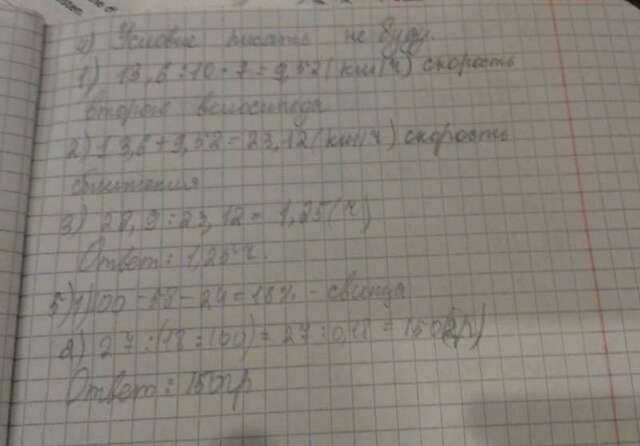 2) Условие писать не буду.
1) 13,6:10·7=9,52(км/ч) скорость
второго велосипеда
2) 13,6+9,52=23,12(км/ч) скорость
сближения
3) 28,9:23,12=1,25(ч)
Ответ: 1,25 ч.
5) 1) 100-58-24=18% - свинца
2) 27:(18:100)=27:0,18=150(гр)
Ответ: 150гр